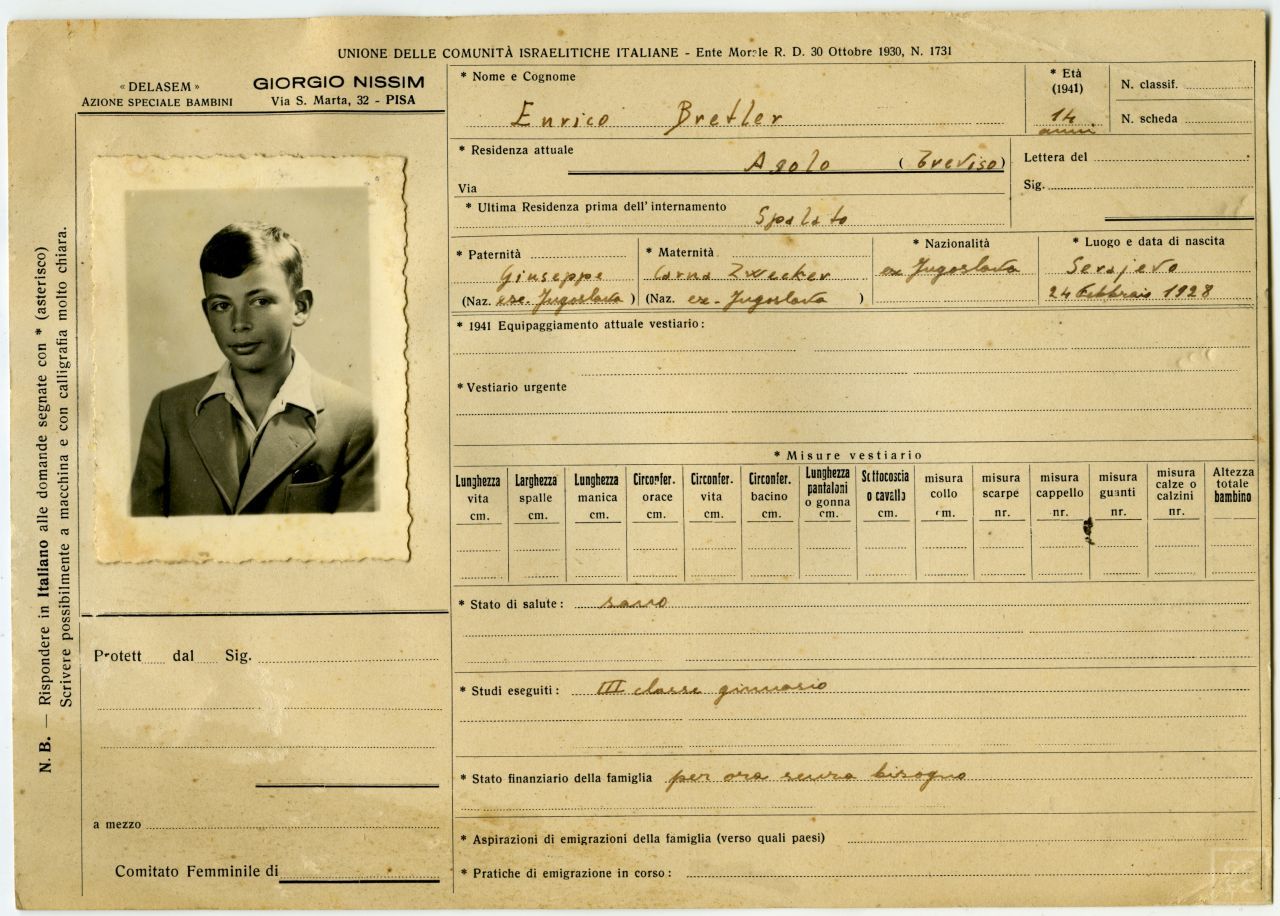 UNIONE DELLE COMUNITÀ ISRAELITICHE ITALIANE - Ente Morale R. D. 30 Ottobre 1930, N. 1731
« DELASEM »
AZIONE SPECIALE BAMBINI
GIORGIO NISSIM
Via S. Marta, 32 - PISA
* Nome e Cognome
Enrico Bretler
* Età
(1941)
14
anni
N. classif.
N. scheda
* Residenza attuale
Asolo (Treviso)
Via
Lettera del
Sig.
* Ultima Residenza prima dell'internamento
Spalato
* Paternità
Giuseppe
(Naz. exe. Jugoslavia )
* Maternità
Zwecker
(Naz. ex. Jugoslavia )
* Nazionalità
ex Jugoslavia
* Luogo e data di nascita
Serajevo
24 Febbraio 1928
* 1941 Equipaggiamento attuale vestiario:
* Vestiario urgente
* Misure vestiario
Lunghezza vita cm.
Larghezza spalle cm.
Lunghezza manica cm.
Circonfer. orace cm.
Circonfer. vita cm.
Circonfer. bacino cm.
Lunghezza pantaloni o gonna cm.
Sottocoscia o cavallo cm.
misura collo cm.
misura scarpe nr.
misura cappello nr.
misura guanti nr.
misura calze o calzini nr.
Altezza totale bambino
* Stato di salute: sano
* Studi eseguiti: III classe ginnasio
* Stato finanziario della famiglia per ora senza bisogno
* Aspirazioni di emigrazioni della famiglia (verso quali paesi)
* Pratiche di emigrazione in corso:
Protett dal Sig.
a mezzo
Comitato Femminile di
N. B. — Rispondere in Italiano alle domande segnate con * (asterisco)
Scrivere possibilmente a macchina e con calligrafia molto chiara.